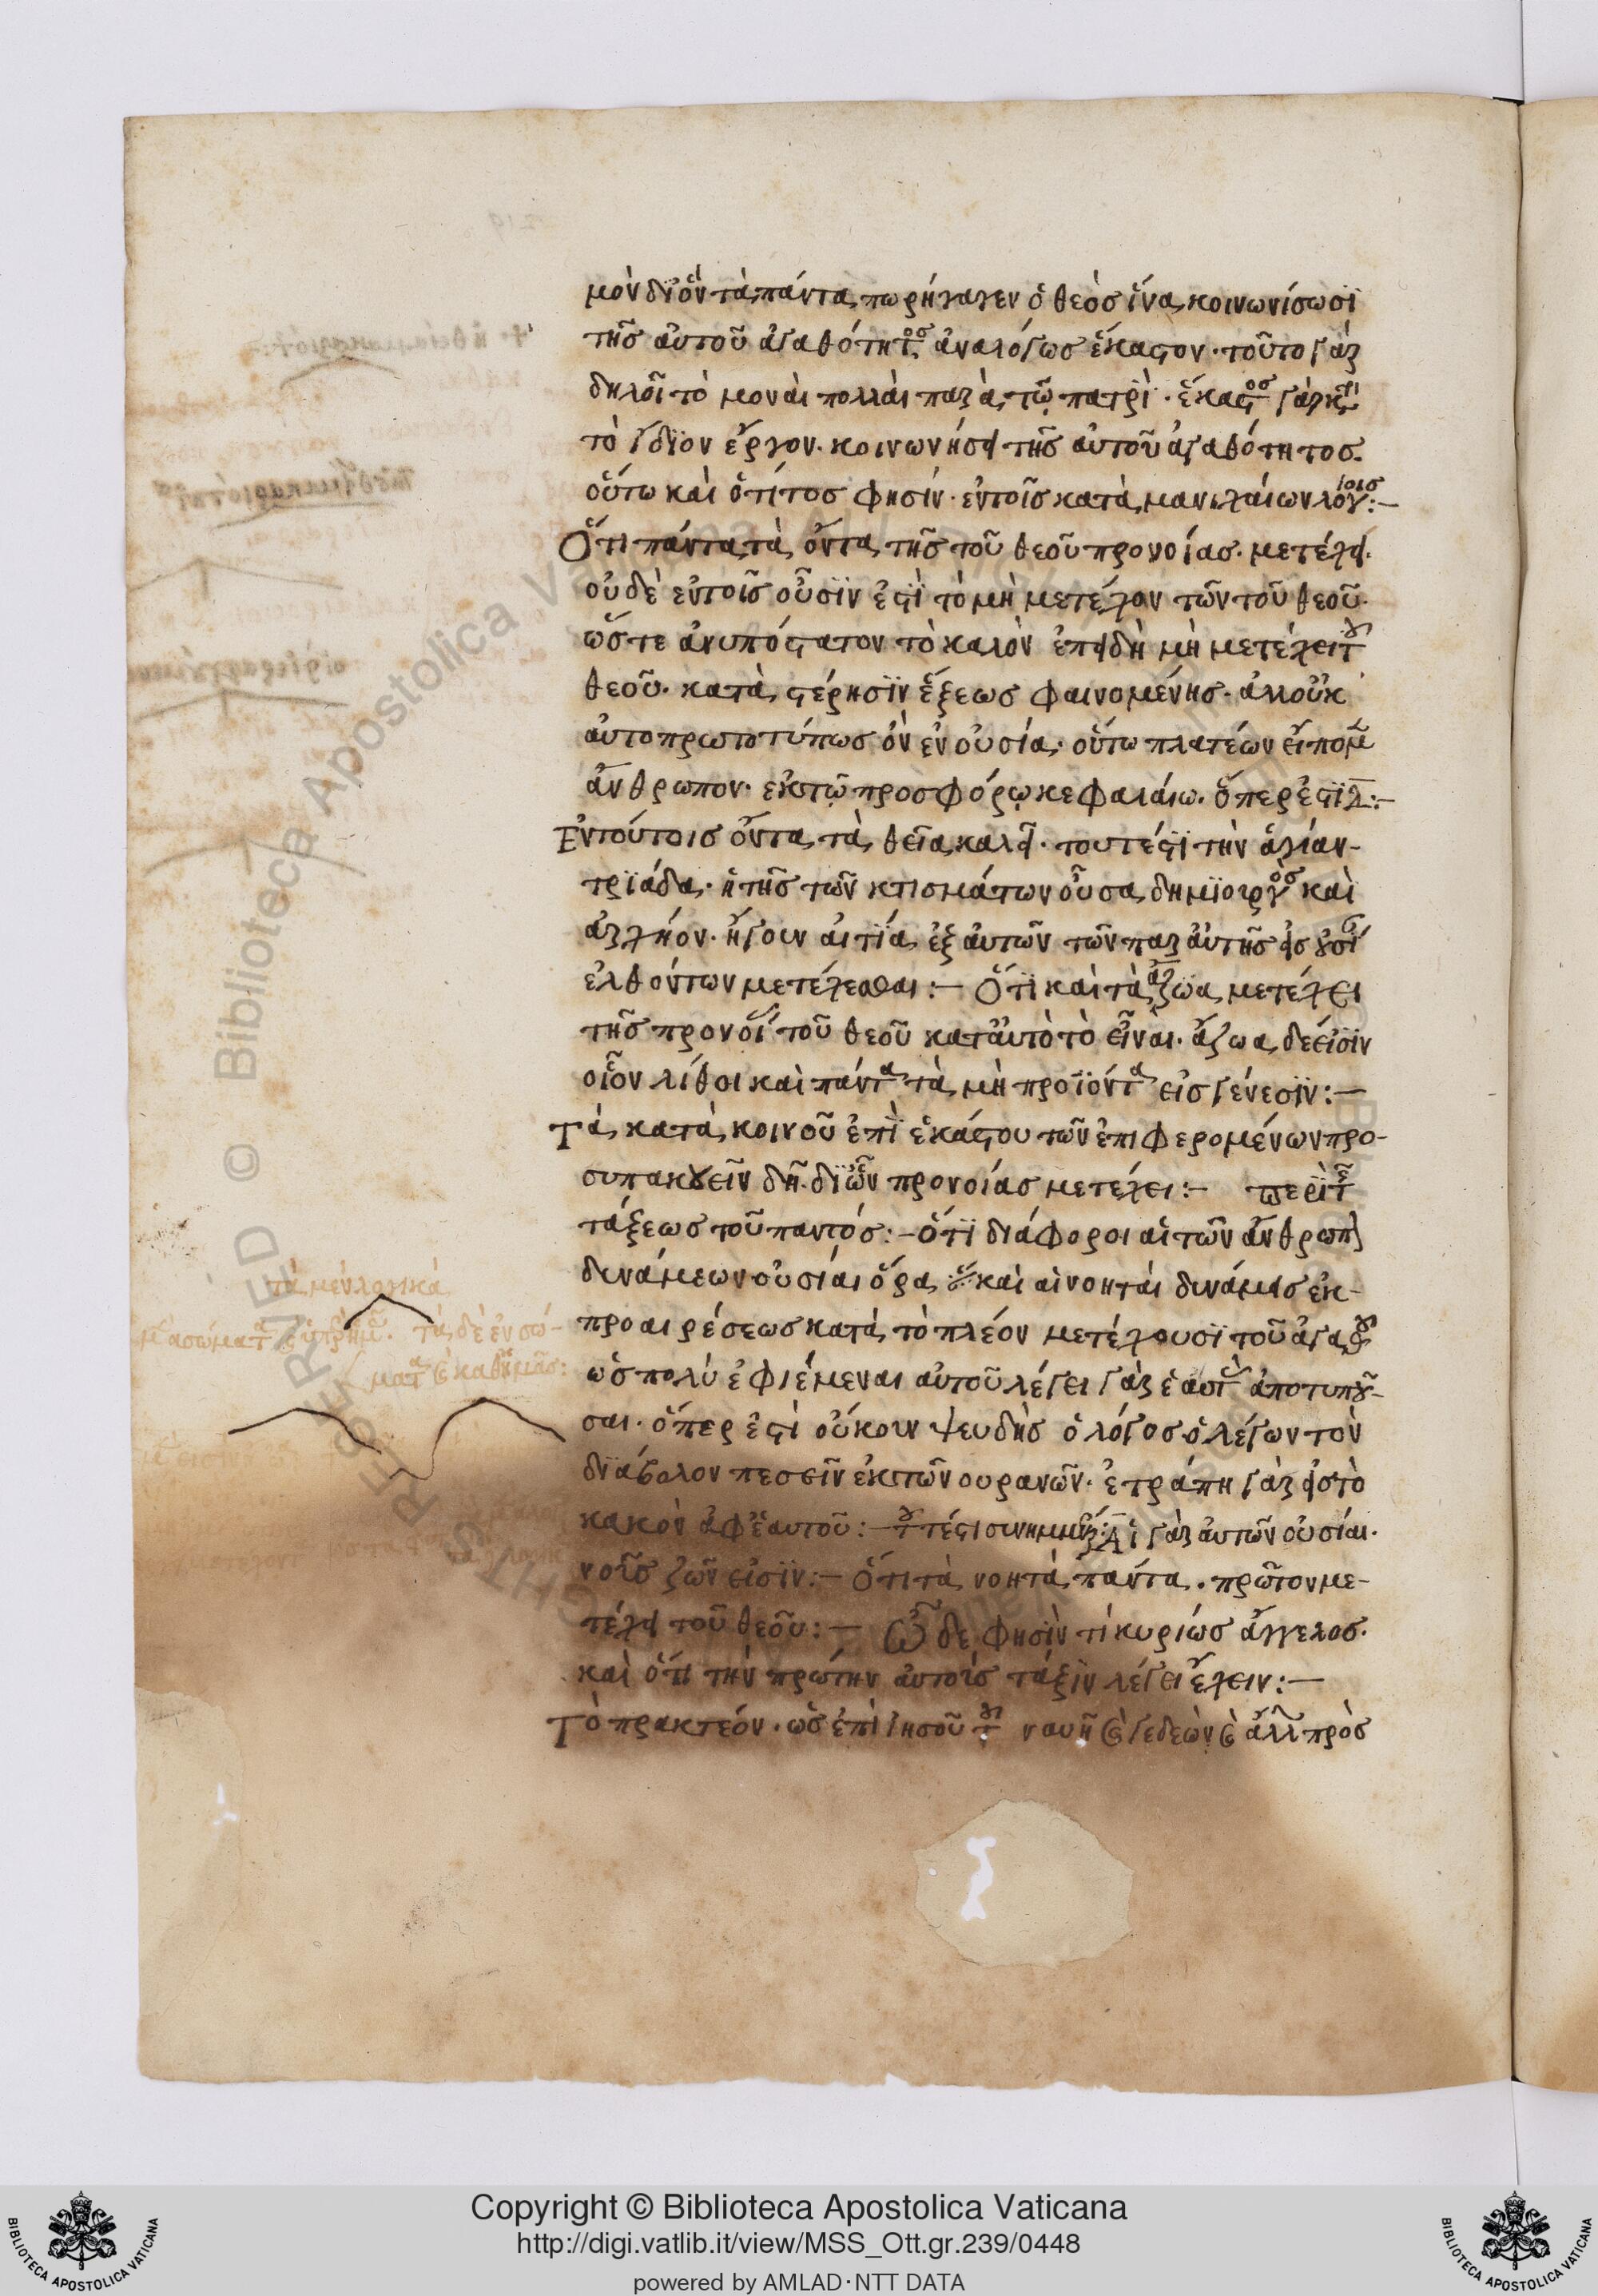 μὸν δι' ὃν τὰ πάντα παρήγαγεν ὁ θεὸς ἵνα κοινωνίσωσϊ
τῆς αὐτοῦ ἀγαθότητος ἀναλόγως ἕκαστον· τοῦτο γὰρ
δηλοῖ τὸ μοναὶ πολλαὶ παρὰ τῶ πατρὶ· ἕκαστος γὰρ κατὰ
τὸ ἴδϊον ἔργον· κοινωνήσει τῆς αὐτοῦ ἀγαθότητος.
οὕτω καὶ ὁ τίτος φησίν· ἐν τοῖς κατὰ μανιχαίων λόγοις:–
Ὅτι πάντα τὰ ὄντα τῆς τοῦ θεοῦ προνοίας· μετέχει.
οὐδὲ ἐν τοῖς οὖσϊν ἐστὶ τὸ μὴ μετέχον τῶν τοῦ θεοῦ·
ὥστε ἀνυπόστατον τὸ καλὸν ἐπειδὴ μὴ μετέχει τοῦ
θεοῦ· κατὰ στέρησϊν ἕξεως φαινομένης· ἀλλ' οὐκ
αὐτοπρωτοτύπως ὂν ἐν οὐσία· οὕτω πλατέων εἴπομεν
ἄνθρωπον· ἐκ τῶ προσφόρω κεφαλαίω· ὅπερ ἐστὶ λ:–
Ἐν τούτοις ὄντα τὰ θεῖα καλεῖ· τουτέστϊ τὴν ἁγίαν
τρϊάδα· ἡ τῆς τῶν κτισμάτων οὖσα δημϊουργὸς καὶ
ἐλθόντων μετέχεσθαι:– Ὅτϊ καὶ τὰ ἄζωα μετέχει
τῆς προνοίας τοῦ θεοῦ κατ' αὐτὸ τὸ εἶναι· ἄζωα δέ εἰσϊν
οἷον λίθοι καὶ πάντα τὰ μὴ προϊόντα εἰς γένεσϊν:–
Τὰ κατὰ κοινοῦ ἐπὶ ἑκάστου τῶν ἐπιφερομένων προ-
συπακούειν δεῖ· δι' ὧν προνοίας μετέχει:– περὶ τῆς
τάξεως τοῦ παντός:– ὅτϊ διάφοροι αἱ τῶν ἀνθρώπων
δυνάμεων οὐσίαι ὅρα καὶ αἱ νοηταὶ δυνάμεις ἐκ
προαιρέσεως κατὰ τὸ πλέον μετέχουσϊ τοῦ ἀγαθοῦ
ὡς πολὺ ἐφιέμεναι αὐτοῦ λέγει γὰρ ἑαυτὰς ἀποτυποῦ-
σαι· ὅπερ ἐστὶ οὔκουν ψευδὴς ὁ λόγος ὁ λέγων τὸν
δϊάβολον πεσεῖν ἐκ τῶν ουρανῶν· ἐτράπη γὰρ εἰς τὸ
κακὸν ἀφ' ἑαυτοῦ:– γὰρ αὐτῶν οὐσίαι·
νοῦς ζῶν εἰσϊν:– Ὅτι τὰ νοητὰ πάντα· πρῶτον με-
τέχει τοῦ θεοῦ:– Ὧδε φησὶν τί κυρίως ἄγγελος·
καὶ ὅτι τὴν πρώτην αὐτοῖς τάξϊν λέγει ἔχειν:–
Τὸ πρακτέον· ὡς ἐπὶ ἰησοῦ τοῦ ναυῆ καὶ γεδεὼν καὶ ἄλλ πρὸς
τὰ μὲν λογικὰ
τὰ δὲ ἐν σώ-
Copyright © Biblioteca Apostolica Vaticana
http://digi.vatlib.it/view/MSS_Ott.gr.239/0448
powered by AMLAD·NTT DATA
BIBLIOTECA APOSTOLICA VATICANA
BIBLIOTECA APOSTOLICA VATICANA